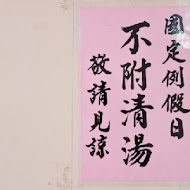 國定例假日
不附清湯
敬請見諒